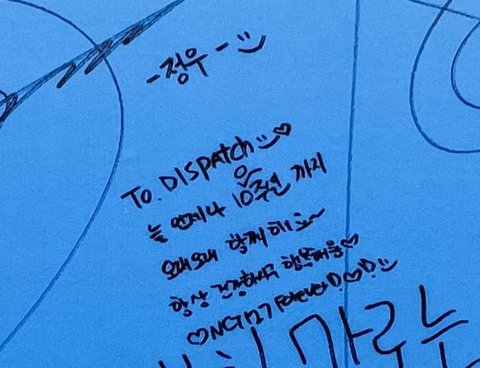 -정우-
To. DISPATCH ♡
늘 언제나 10주년 까지
오래오래 함께 해요~
항상 건강하시구
♡NCT127 Forever!♡!